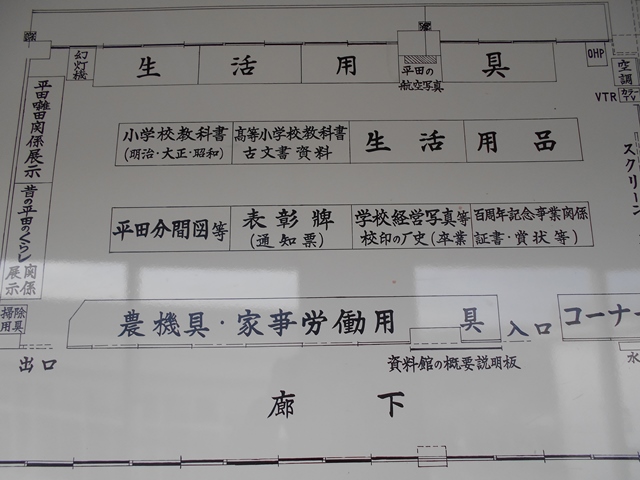 幻灯機
生活用具
平田の
航空写真
OHP
空調
VTR
カラーTV
スクリーン
平田囃田関係展示
昔の平田のくらし
関係
展示
小学校教科書
(明治・大正・昭和)
高等小学校教科書
古文書資料
生活用品
平田分間図等
表彰牌
(通知票)
学校経営写真等
校印の厂史(卒業
百周年記念事業関係
証書・賞状等)
掃除
用具
農機具・家事労働用具
入口
コーナー
出口
資料館の概要説明板
水
廊下